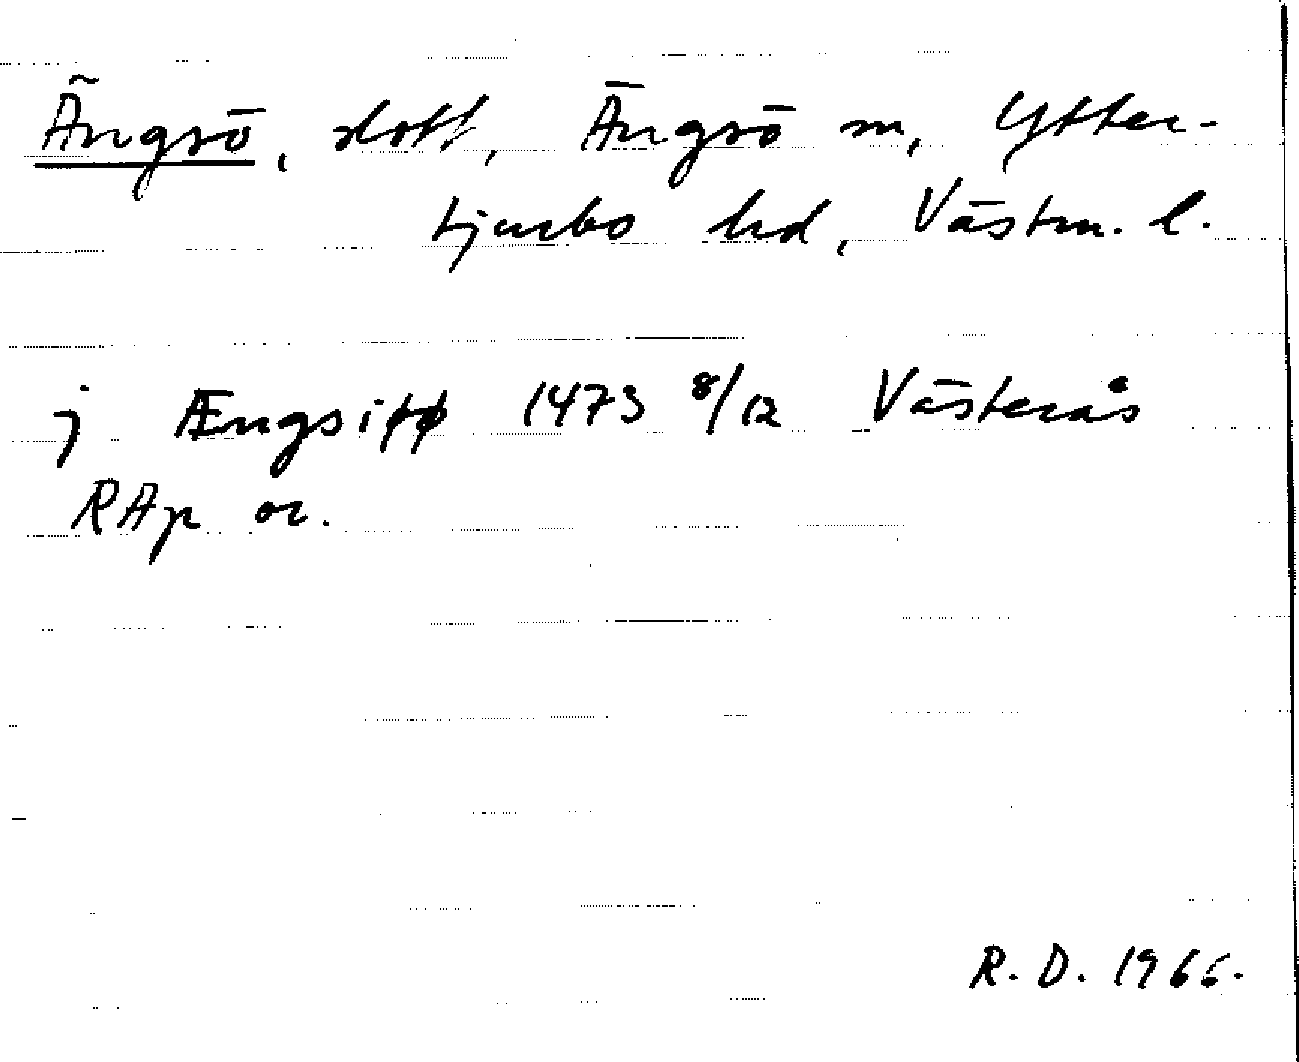 Ängsö, slott, Ängsö sn, Ytter-
tjurbo hd, Västm. l.
j Ængsiøø 1473 8/12 Västerås
RAp or.
R. D. 1966.